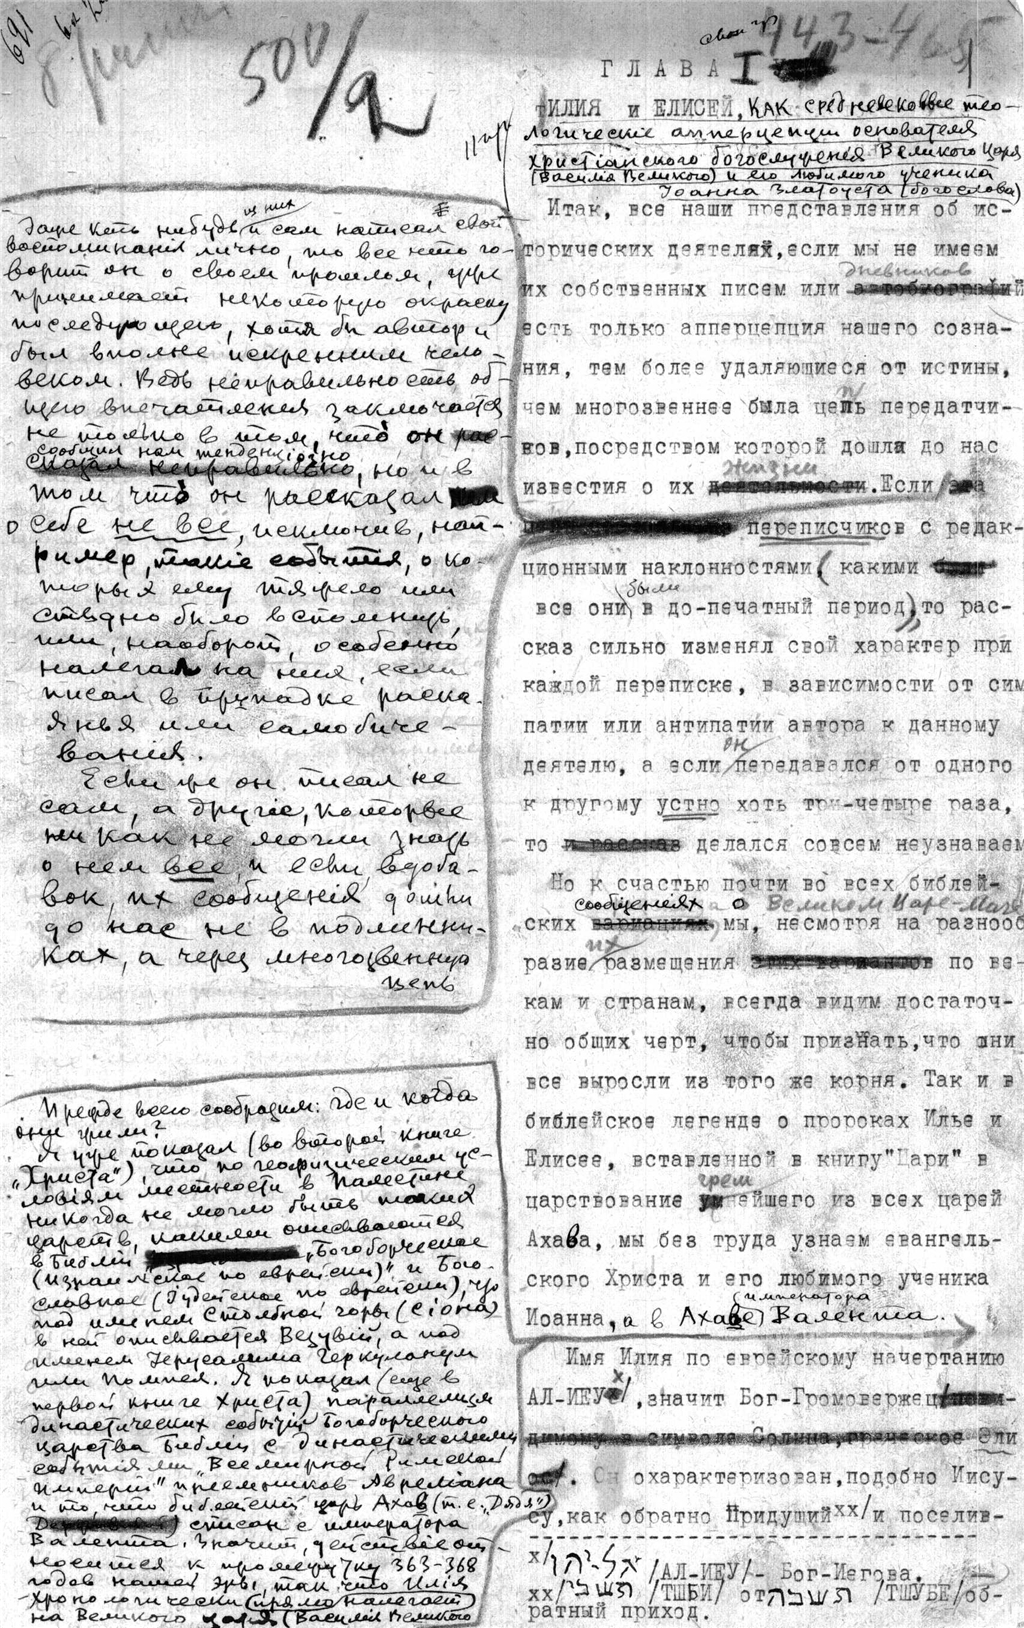 691
500/2
443-465
ГЛАВА I
ИЛИЯ и ЕЛИСЕЙ, КАК средневековые тео-
логическіе апперцепции основателя
христіанского богослуженія Великого Царя
(Василія Великого) и его любимого ученика
Іоанна Златоуста (богослова)
Итак, все наши представления об ис-
торических деятелях, если мы не имеем
дневников
их собственных писем или автобиографий
есть только апперцепция нашего созна-
ния, тем более удаляющиеся от истины,
чем многозвеннее была цепь передатчи-
ков, посредством которой дошла до нас
жизни
известия о их деятельности. Если
переписчиков с редак-
ционными наклонностями (какими
были
все они в до-печатный период), то рас-
сказ сильно изменял свой характер при
каждой переписке, в зависимости от сим
патии или антипатии автора к данному
он
деятелю, а если передавался от одного
к другому устно хоть три-четыре раза,
то и рассказ делался совсем неузнаваем
Но к счастью почти во всех библей-
сообщениях о Великом Царе-
ских вариациях, мы, несмотря на разнооб
их
разие размещения этих вариантов по ве-
кам и странам, всегда видим достаточ-
но общих черт, чтобы признать, что они
все выросли из того же корня. Так и в
библейское легенде о пророках Илье и
Елисее, вставленной в книгу "Цари" в
грем
царствование умнейшего из всех царей
Ахава, мы без труда узнаем евангель-
ского Христа и его любимого ученика
императора
Иоанна, а в Ахаве) Валента.
Имя Илия по еврейскому начертанию
АЛ-ИЕУ х/, значит Бог-Громовержец
димому в символе Солнца, греческое Эли
ос/. Он охарактеризован, подобно Иису-
су, как обратно Придущий хх/ и поселив-
х/ אל-יהו /АЛ-ИЕУ/- Бог-Иегова.
хх/ תשבי /ТШБИ/ от תשבה /ТШУБЕ/об-
ратный приход.
Даже кеть нибудь из них и сам написал свои
воспоминанія лично, то все что го-
ворит он о своем прошлом, уже
принимает некоторую окраску
последующего, хотя бы автор и
был вполне искренним чело-
веком. Ведь неправильность об-
щего впечатления заключается
не только в том, что он рас-
сообщил нам тенденціозно
сказал неправильно, но и в
том что он рассказал
о себе не все, исключив, нап-
ример, такіе событія, о ко-
торых ему тяжело или
стыдно было вспомнить,
или, наоборот, особенно
налегал на них, если
писал в припадке раска-
янья или самобиче-
ванія.
Если же он писал не
сам, а другіе, которые
ни как не могли знать
о нем все, и если, вдоба-
вок, их сообщенія дошли
до нас не в подлинни-
ках, а через многозвенную
цепь
Прежде всего сообразим: где и когда
они жили?
Я уже показал (во второй книге
"Христа"), что по геофизическим ус-
ловіям местности в Палестине
никогда не могло быть таких
царств, какими описываются
в Библіи "Богоборческое
(Израильское по еврейски)" и Бого-
славное (Іудейское по еврейски), что
под именем Столбной горы (Сіона)
в ней описывается Везувій, а под
именем Іерусалима Геркуланум
или Помпея. Я показал (еще в
первой книге Христа) параллелизм
династических событій Богоборческого
царства Библіи с династическими
событіями "Всемирной Римской
Имперіи" преемников Авреліана
и то, что библейскій царь Ахав (т.е. "Дядя")
списан с императора
Валента. Значит, действіе от-
носится к промежутку 363-368
годов нашей эры, так что Илія
хронологически (прямо налегает)
на Великого царя (Василія Великого